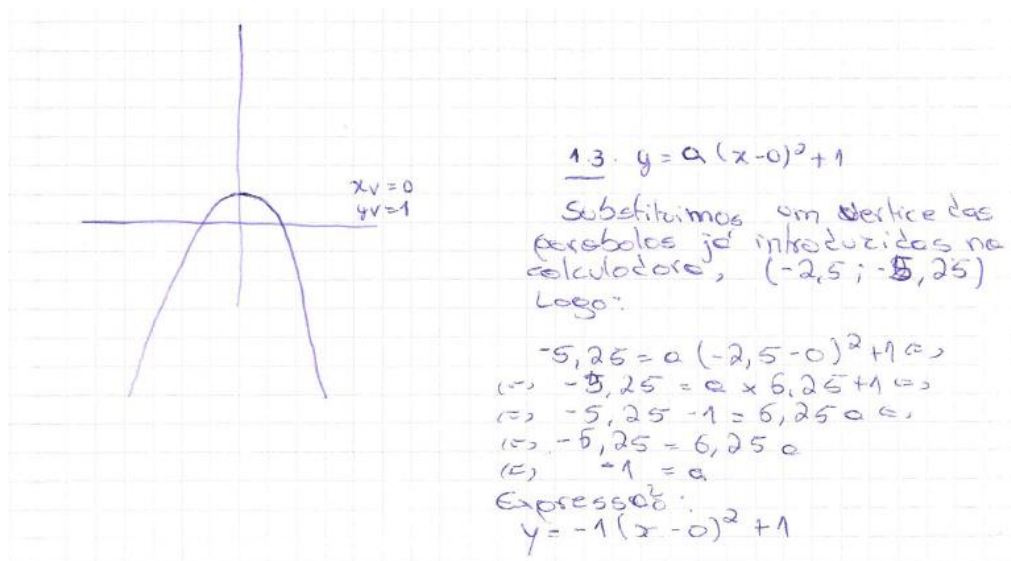 xv = 0
yv = 1
1.3. y = a (x-0)² + 1
Substituimos um vertice das
parabolas já introduzidas na
calculadora, (-2,5 ; -5,25)
Logo:
-5,25 = a (-2,5-0)² + 1 (=)
(=) -5,25 = a x 6,25 + 1 (=)
(=) -5,25 - 1 = 6,25 a (=)
(=) -6,25 = 6,25 a
(=) -1 = a
Expressão:
y = -1 (x - 0)² + 1